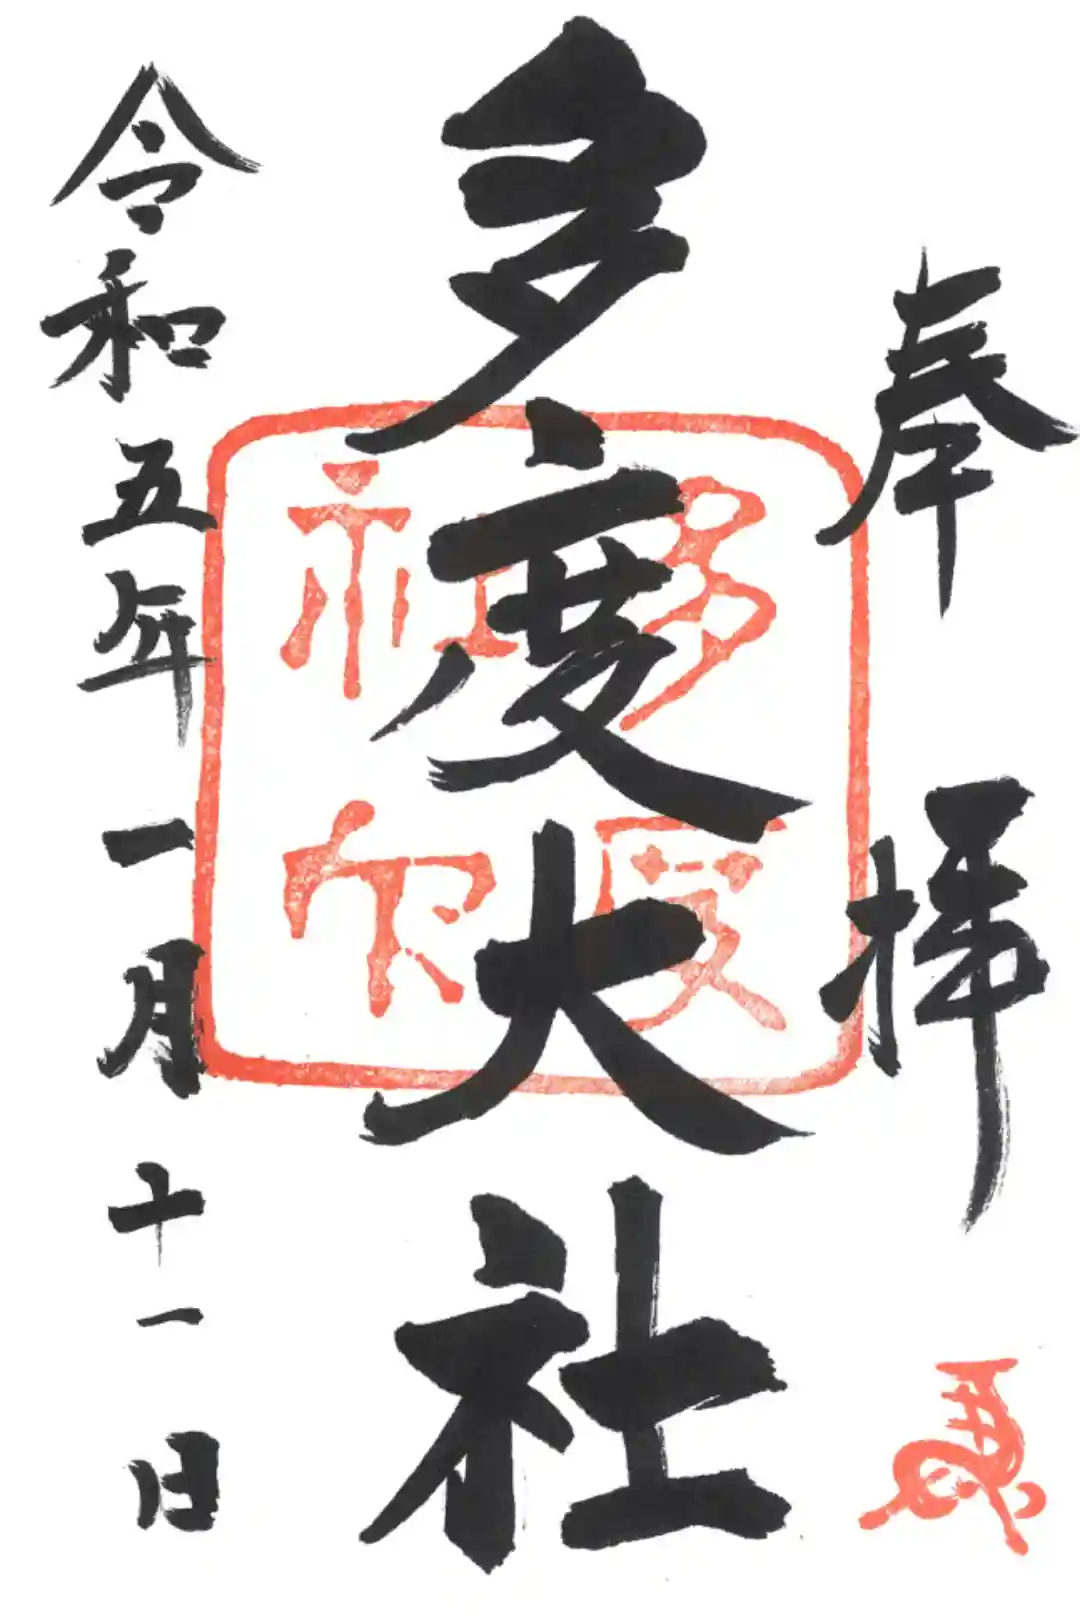 奉拝
多度大社
多度
社印
令和五年一月十一日